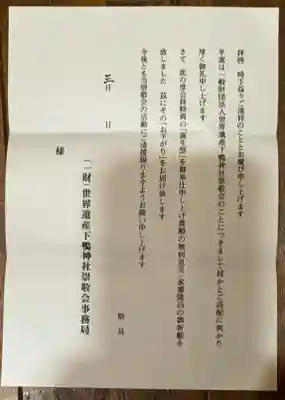 拝啓 時下益々ご清祥のこととお慶び申し上げます
平素は一般財団法人世界遺産下鴨神社崇敬会のことにつきまして何かとご高配に与かり
厚く御礼申し上げます
さて、此の度会員特典の『誕生祭』を御奉仕申し上げ貴殿の無病息災・家業隆昌の御祈願を
致しました 茲にその「お下がり」をお届け致します
今後とも当崇敬会の活動にご清援賜りますようお願い申し上げます
敬具
三月 日
(一財)世界遺産下鴨神社崇敬会事務局
様